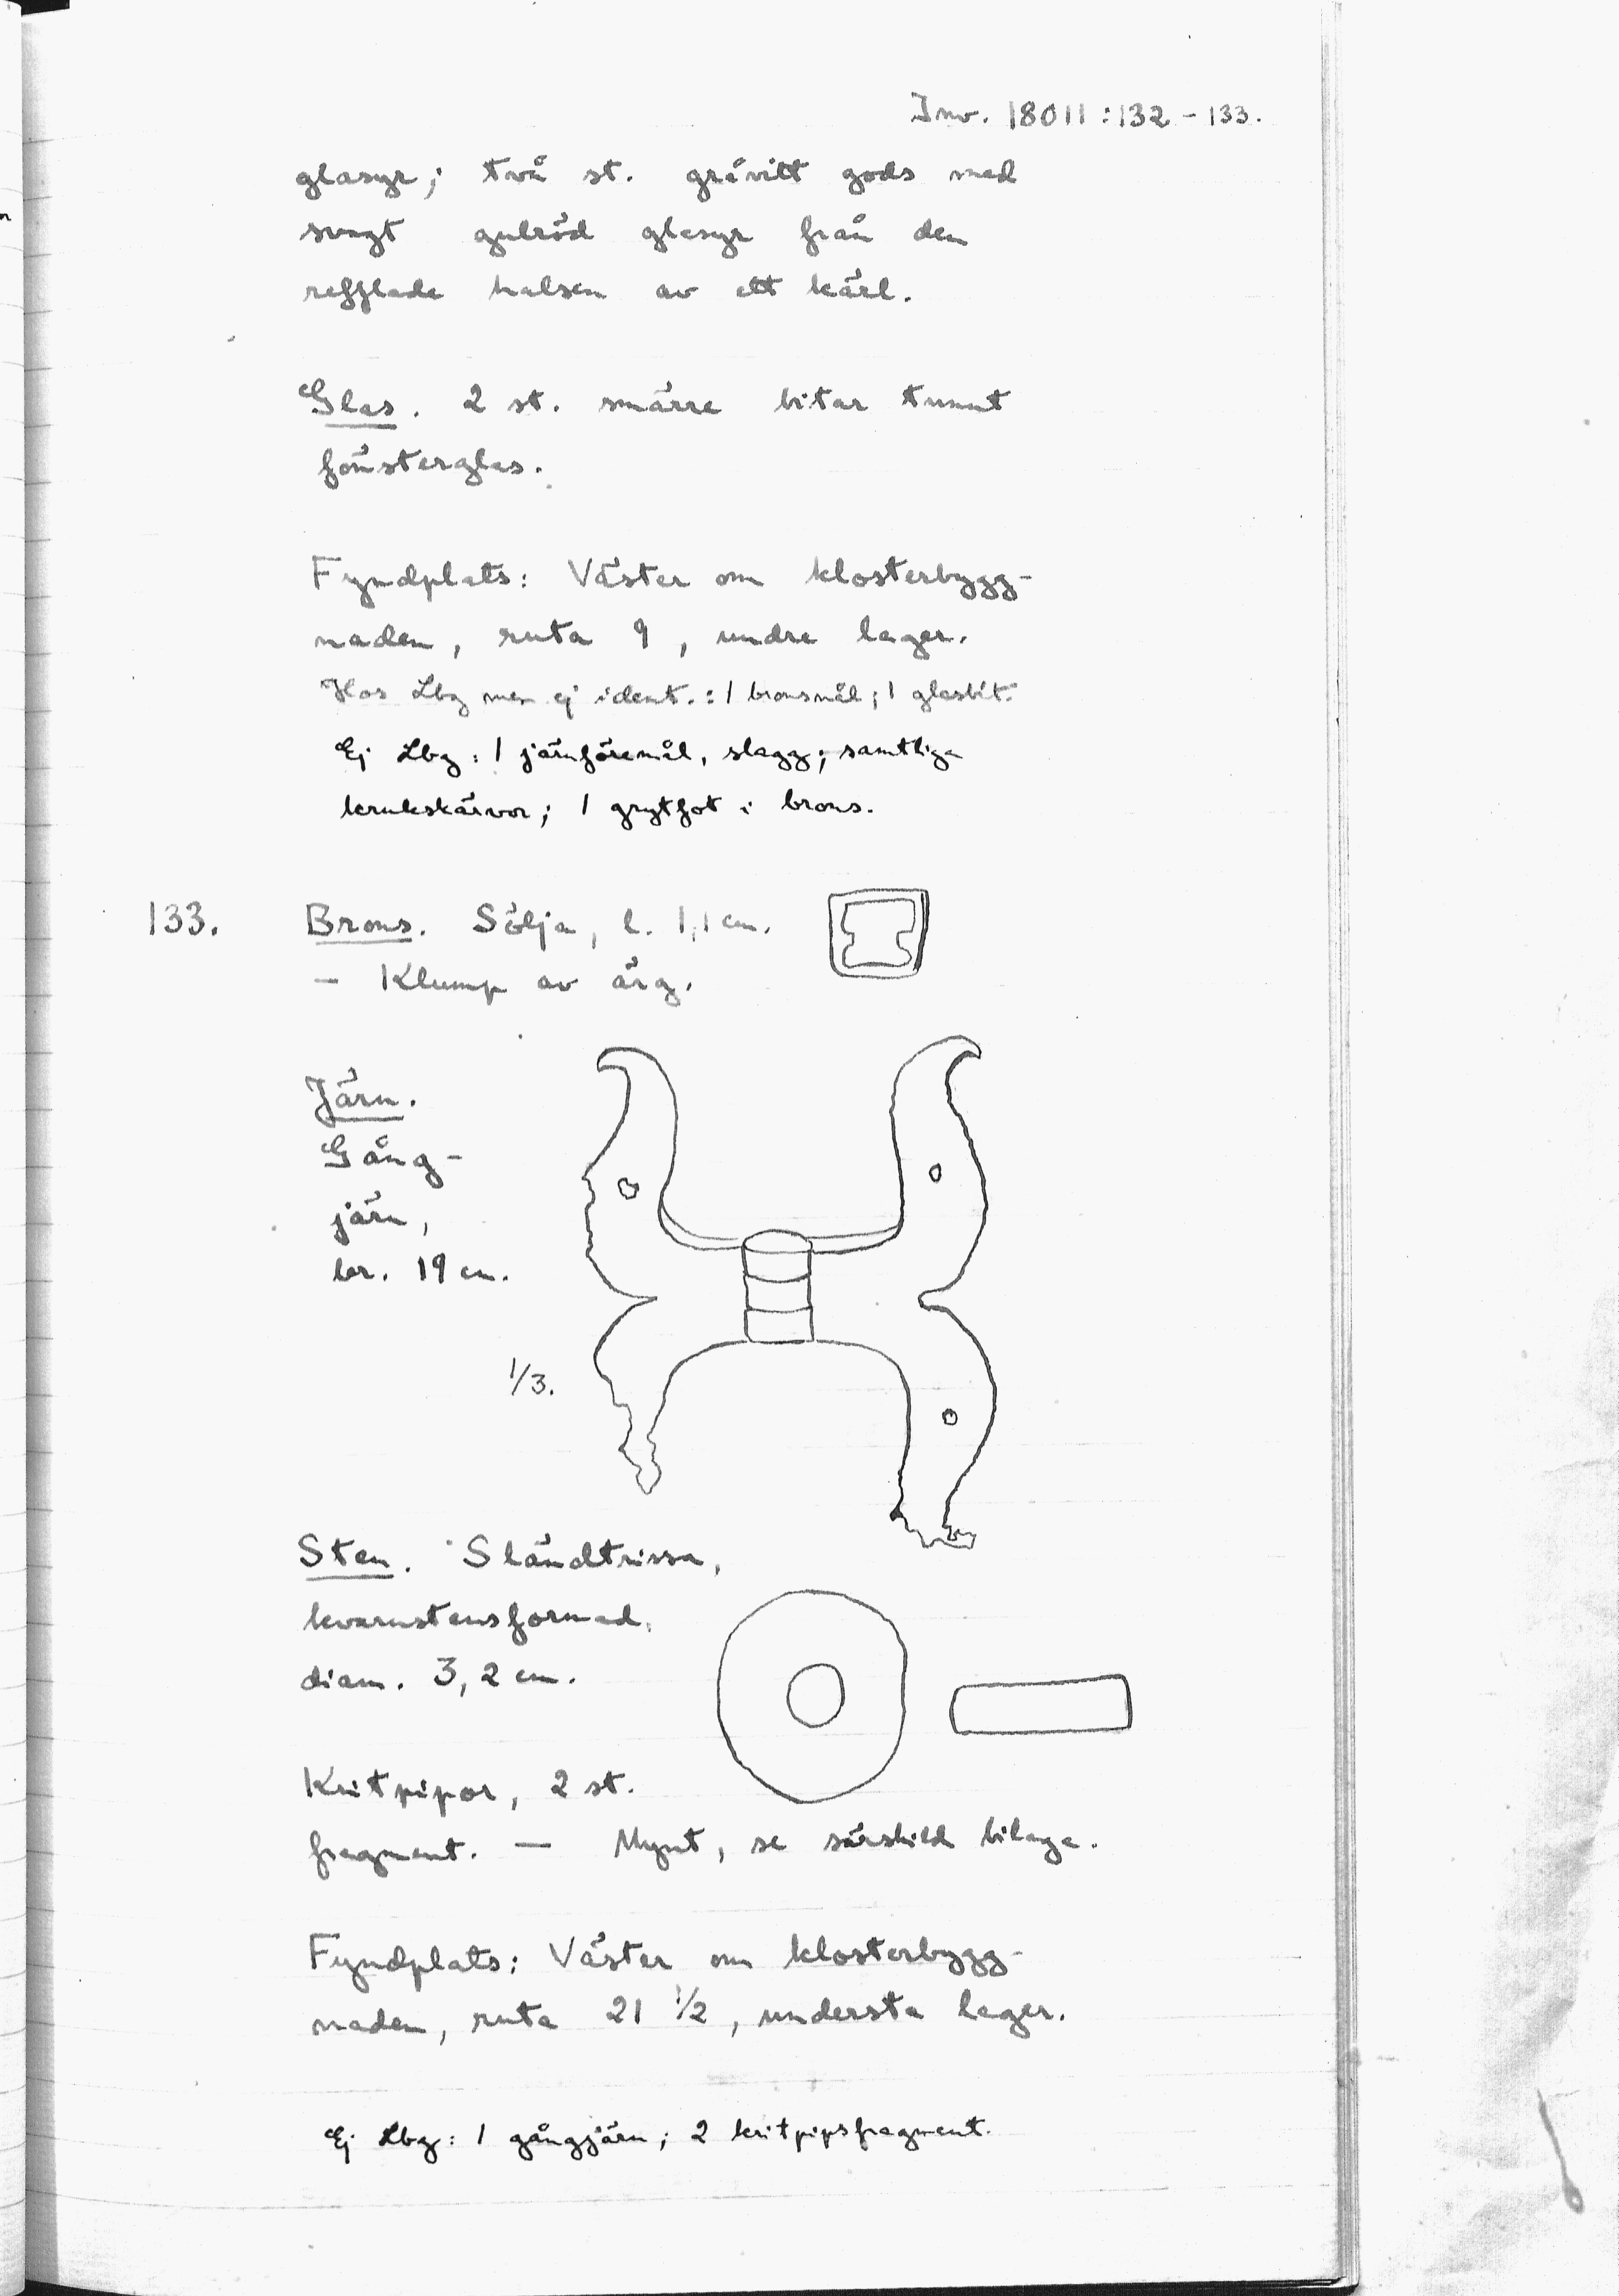 Inv. 18011:132-133.
glasyr; två st. gråvitt gods med
svagt gulröd glasyr från den
refflade halsen av ett kärl.
Glas. 2 st. smärre bitar tunnt
fönsterglas.
Fyndplats: Väster om klosterbygg-
naden, ruta 9, undre lager.
Hos Lbg men ej ident.: 1 bronsnål; 1 glasbit.
Ej Lbg: 1 järnföremål, slagg; samtliga
krukskärvor; 1 grytfot i brons.
133. Brons. Sölja, l. 1,1 cm.
— Klump av ärg.
Järn.
Gång-
järn,
br. 19 cm.
1/3.
Sten. Sländtrissa,
kvarnstensformad,
diam. 3,2 cm.
Kritpipor, 2 st.
fragment. — Mynt, se särskild bilaga.
Fyndplats: Väster om klosterbygg-
naden, ruta 21 1/2, understa lager.
Ej Lbg: 1 gångjärn; 2 kritpipsfragment.